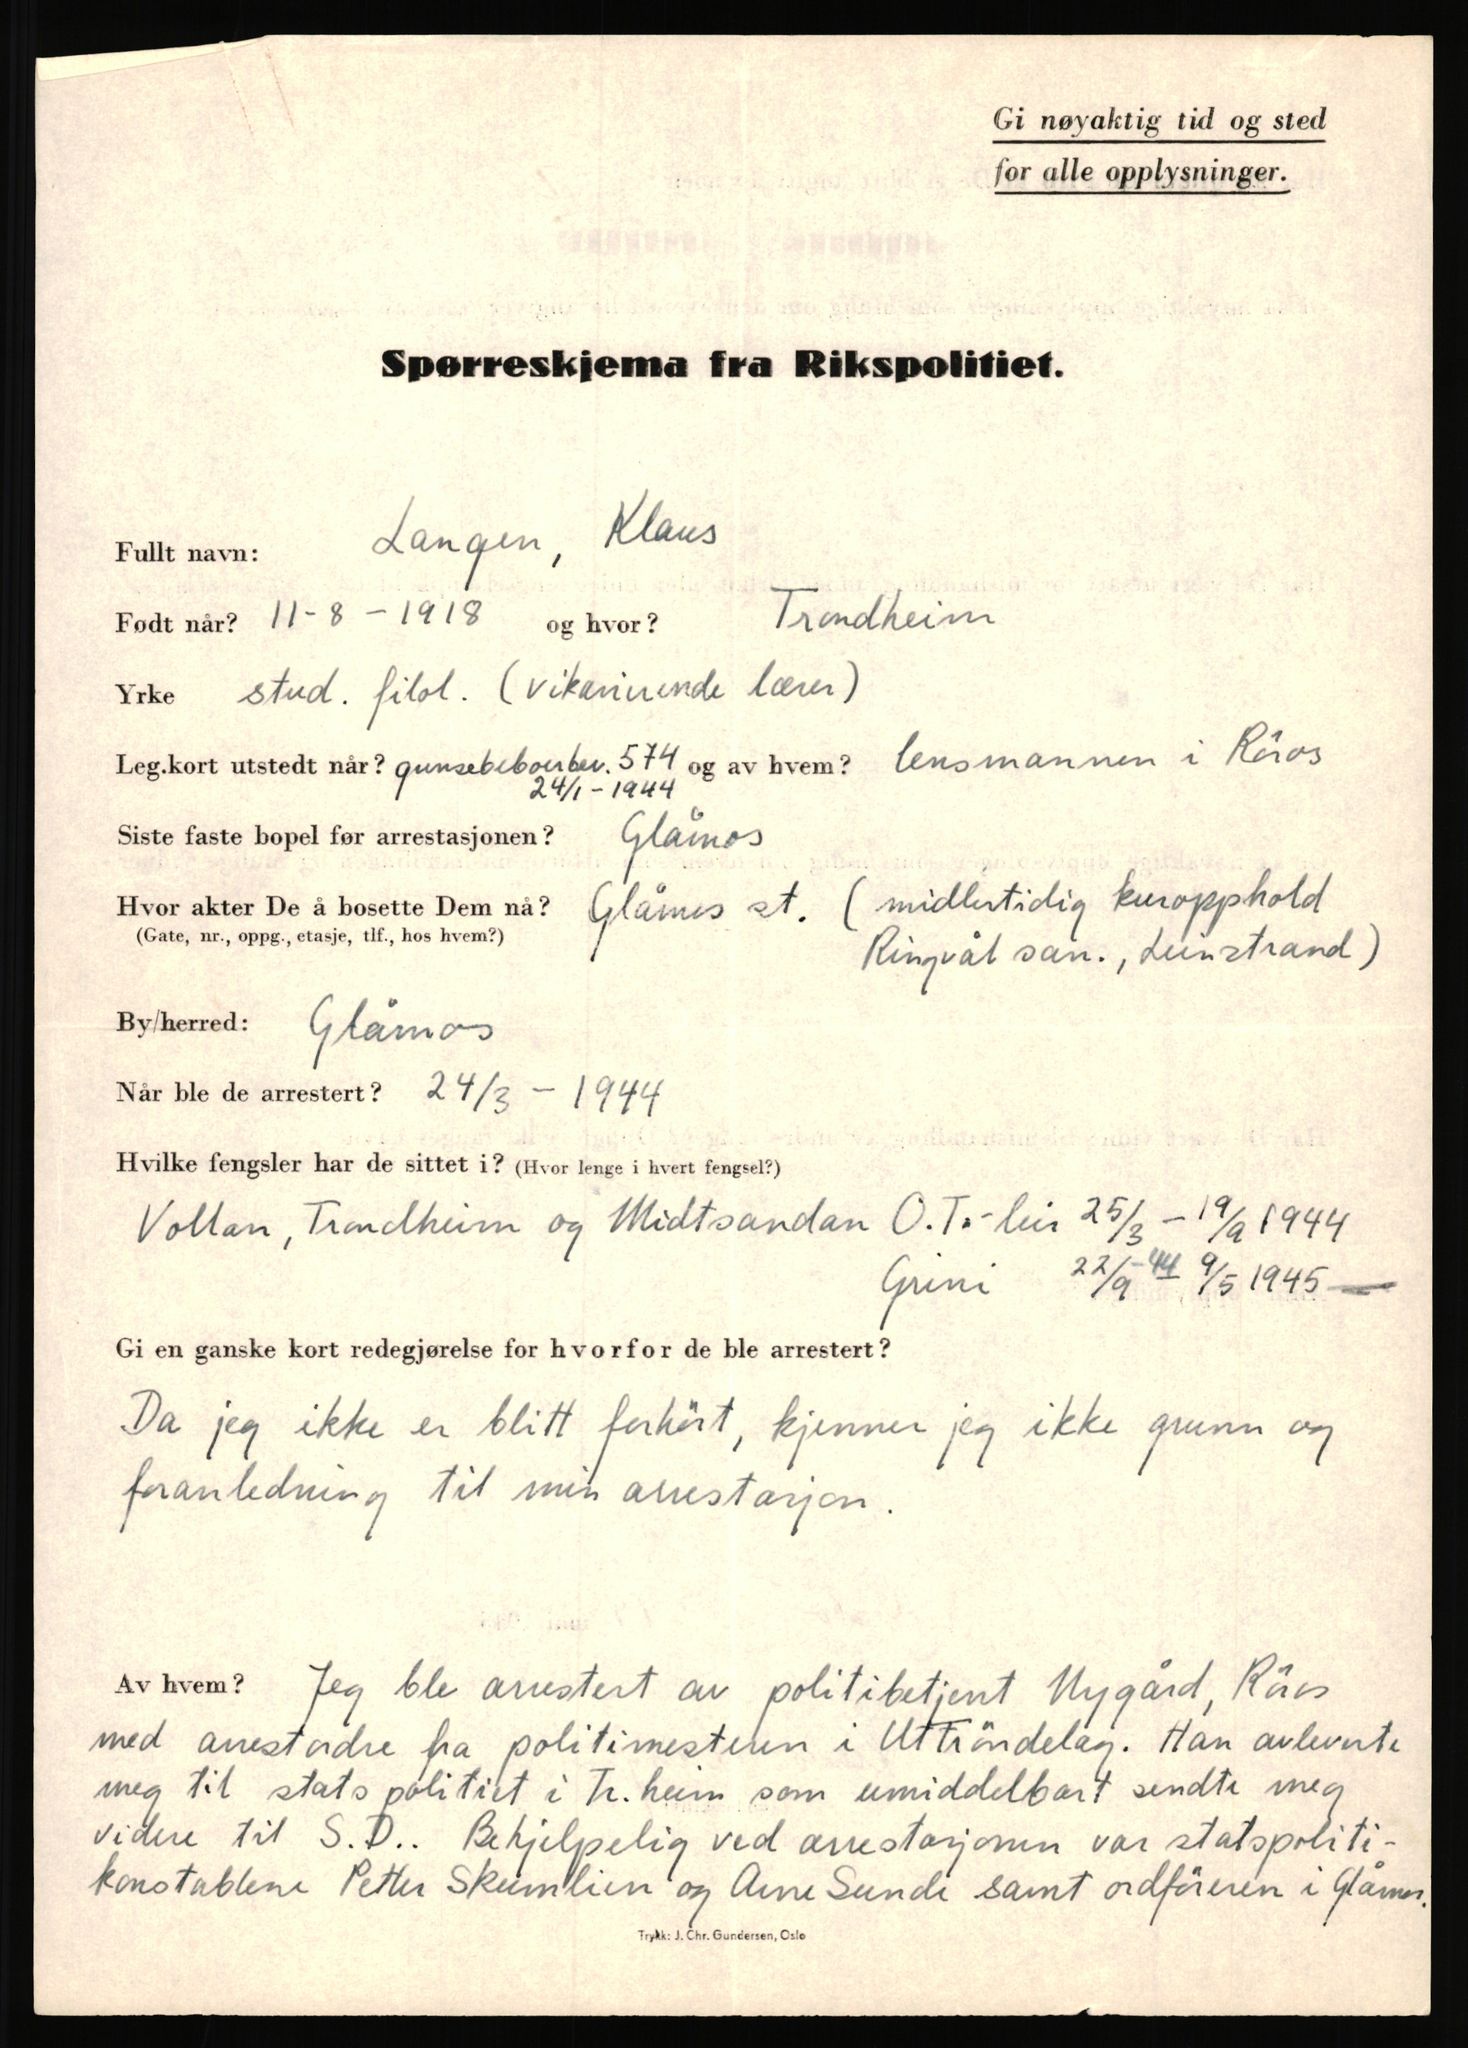 Gi nøyaktig tid og sted
for alle opplysninger.
Spørreskjema fra Rikspolitiet.
Fullt navn: Langen, Klaus
Født når? 11-8-1918 og hvor? Trondheim
Yrke stud. filol. (vikarierende lærer)
Leg.kort utstedt når? grensebeboerbev. 574 og av hvem? lensmannen i Röros
24/1-1944
Siste faste bopel før arrestasjonen? Glåmos
Hvor akter De å bosette Dem nå? Glåmos st. (midlertidig kuropphold
(Gate, nr., oppg., etasje, tlf., hos hvem?) Ringvål san., Leinstrand)
By/herred: Glåmos
Når ble de arrestert? 24/3 - 1944
Hvilke fengsler har de sittet i? (Hvor lenge i hvert fengsel?)
Vollan, Trondheim og Midtsandan O.T.-leir 25/3 - 19/9 1944
Grini 22/9-44 9/5 1945
Gi en ganske kort redegjørelse for hvorfor de ble arrestert?
Da jeg ikke er blitt forhört, kjenner jeg ikke grunn og
foranledning til min arrestasjon.
Av hvem? Jeg ble arrestert av politibetjent Nygård, Röros
med arrestordre fra politimesteren i Uttröndelag. Han avleverte
meg til statspolitiet i Tr.heim som umiddelbart sendte meg
videre til S.D.. Behjelpelig ved arrestasjonen var statspoliti-
konstablene Petter Skumlien og Arne Sunde samt ordföreren i Glåmos.
Trykk: J. Chr. Gundersen, Oslo